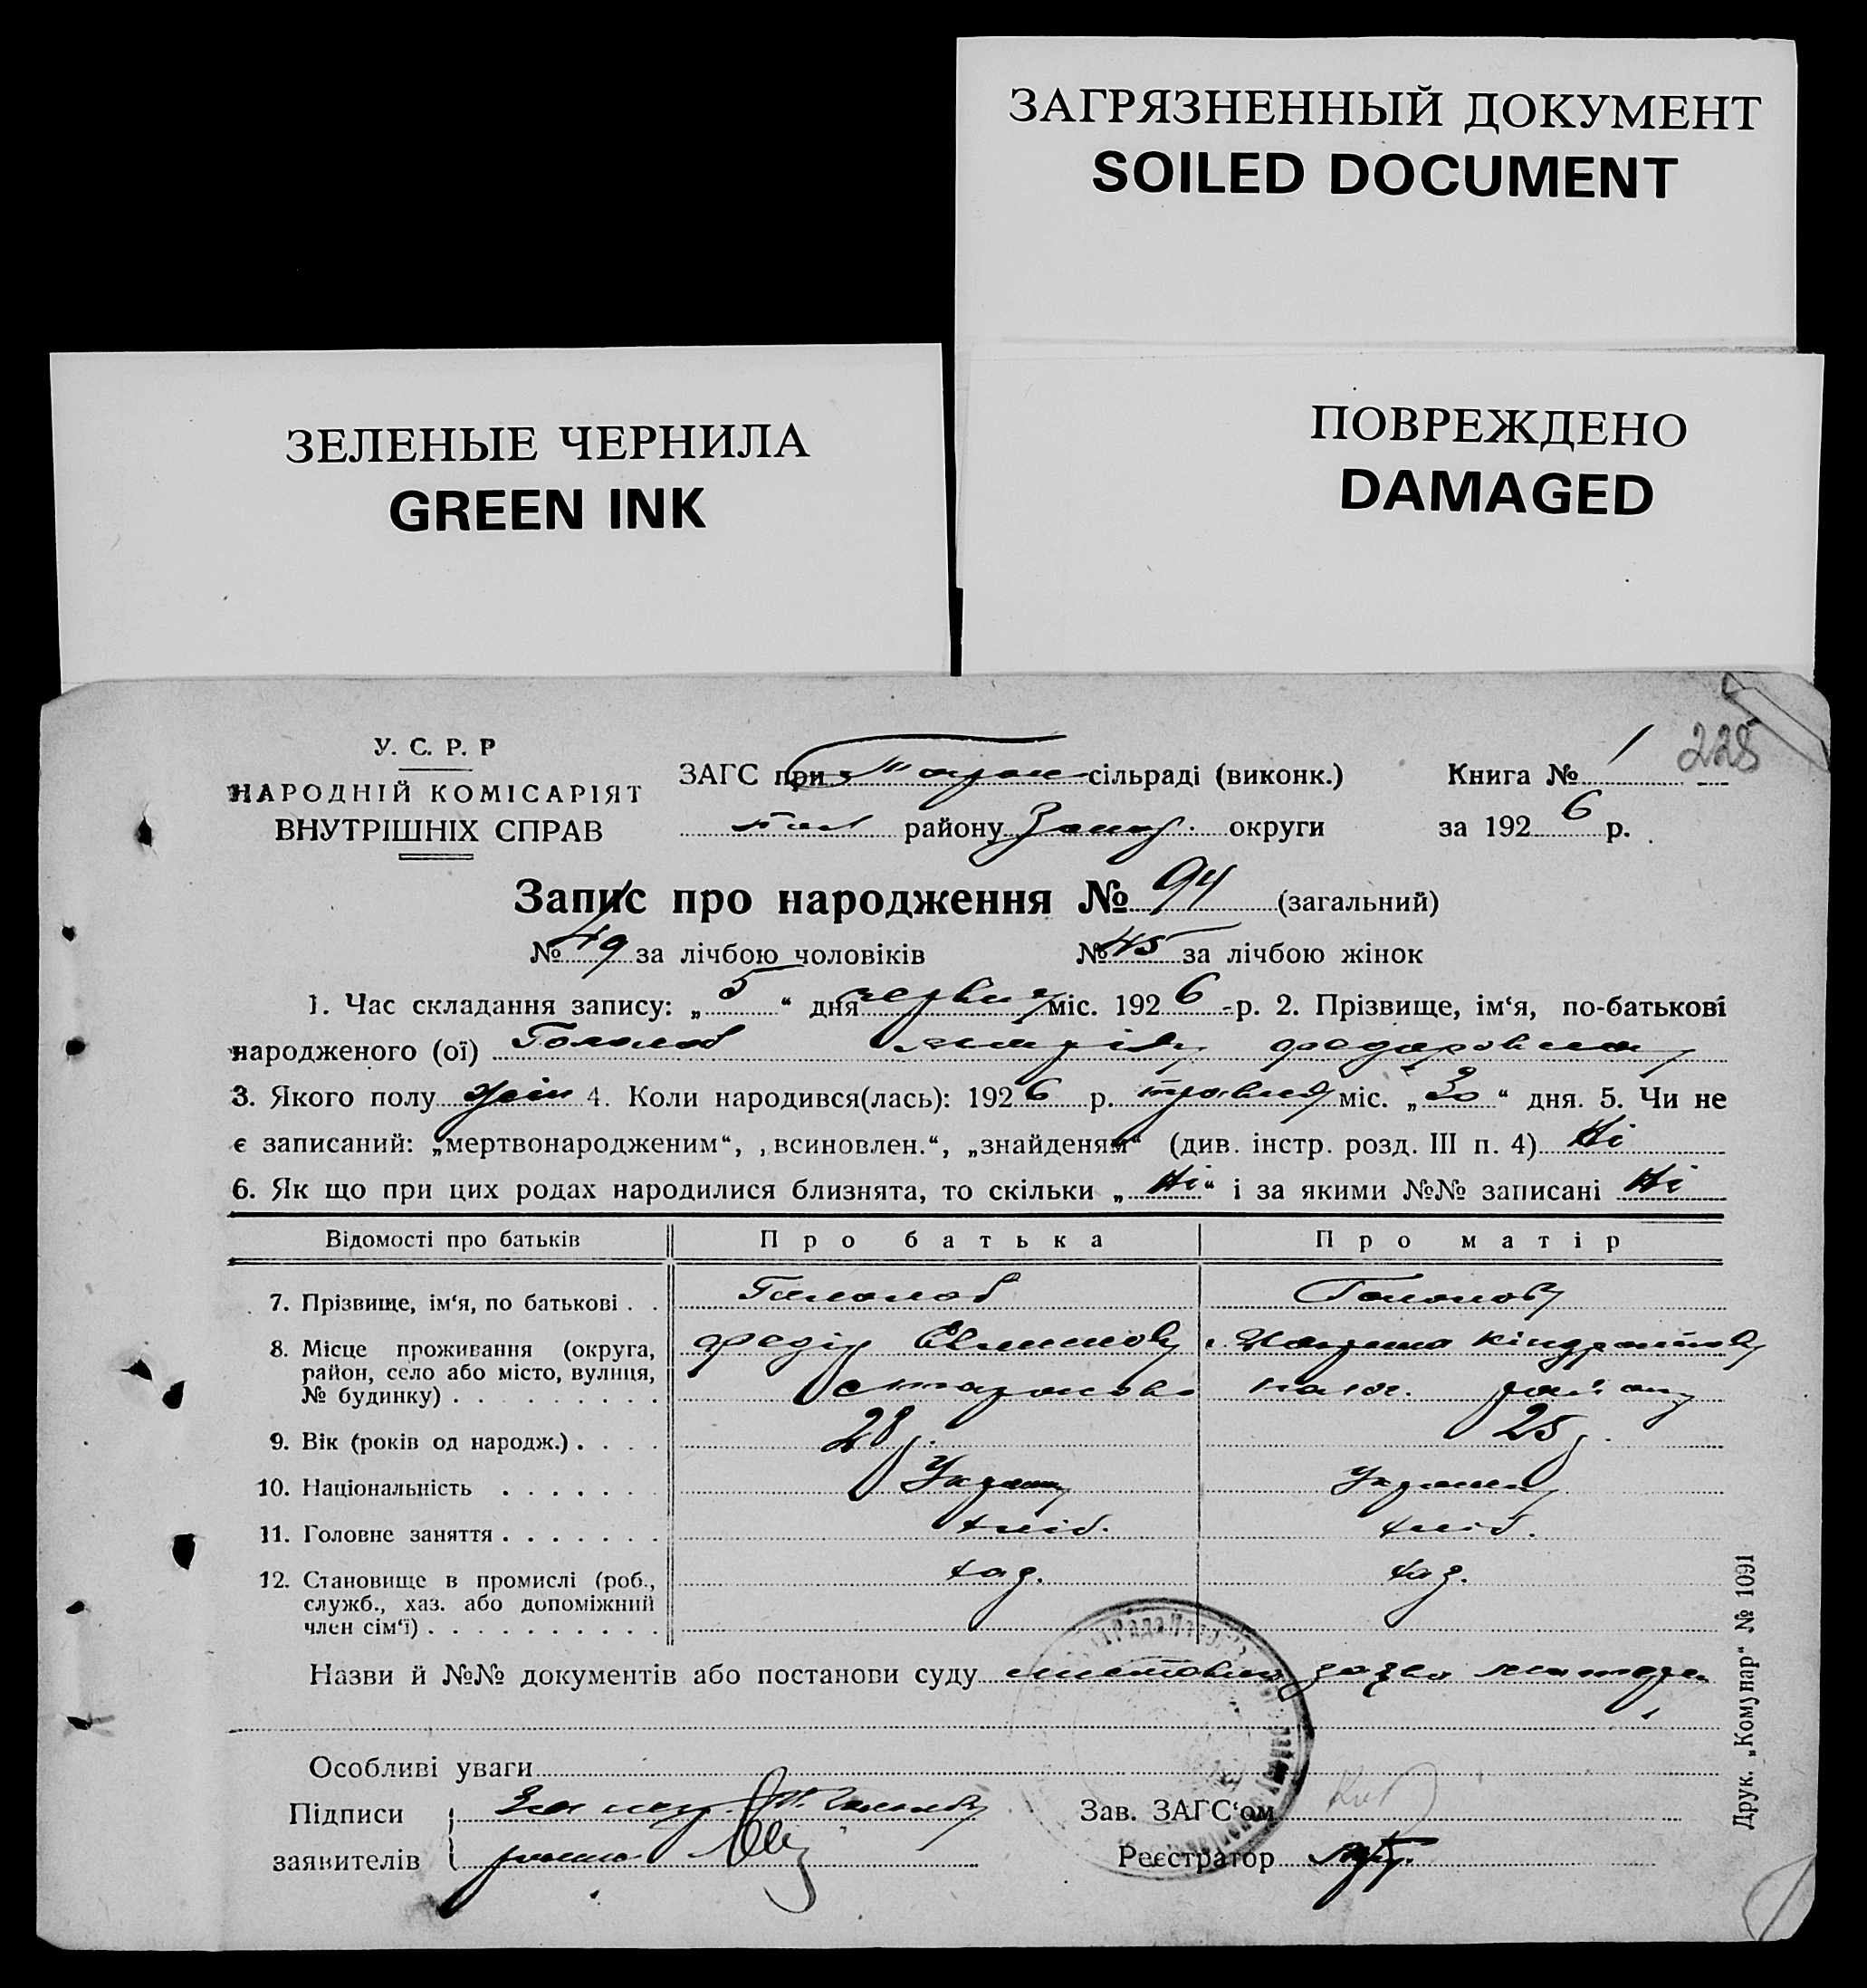 ЗАГРЯЗНЕННЫЙ ДОКУМЕНТ
SOILED DOCUMENT
ЗЕЛЕНЫЕ ЧЕРНИЛА
GREEN INK
ПОВРЕЖДЕНО
DAMAGED
228
У. С. Р. Р
НАРОДНІЙ КОМІСАРІЯТ
ВНУТРІШНІХ СПРАВ
ЗАГС при сільраді (виконк.)
району Запор. округи
Книга № 1
за 1926 р.
Запис про народження № 94 (загальний)
№ 49 за лічбою чоловіків № 45 за лічбою жінок
1. Час складання запису: „5“ дня червня міс. 1926 р. 2. Прізвище, ім‘я, по-батькові
народженого (ої) Гололоб Марія Федоровна
3. Якого полу жін 4. Коли народився(лась): 1926 р. травня міс. „30“ дня. 5. Чи не
є записаний: „мертвонародженим“, „всиновлен.“, „знайденям“ (див. інстр. розд. III п. 4) Ні
6. Як що при цих родах народилися близнята, то скільки „Ні“ і за якими №№ записані Ні
Відомості про батьків Про батька Про матір
7. Прізвище, ім‘я, по батькові . . Гололоб
8. Місце проживання (округа, район, село або місто, вулиця, № будинку) . . . . . . . . . Федір
9. Вік (років од народж.) . . . . 28 р. 25 р.
10. Національність . . . . . . . Україн Україн
11. Головне заняття . . . . . . . хліб. хліб.
12. Становище в промислі (роб., служб., хаз. або допоміжний член сім‘ї) . . . . . . . . . . хаз. хаз.
Назви й №№ документів або постанови суду
Особливі уваги
Підписи
заявителів
Зав. ЗАГС‘ом
Реєстратор
Друк. „Комунар“ № 1091